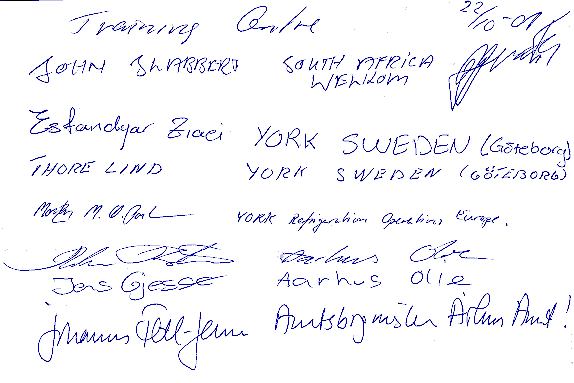 Training Centre 22/10-01
JOHN SLABBERT SOUTH AFRICA
WELKOM
Eskandyar Ziaei YORK SWEDEN (Göteborg)
THORE LIND YORK SWEDEN (GÖTEBORG)
M. YORK Refrigeration Operations Europe.
Aarhus Olie
Jens Gjesse Aarhus Olie
Johannes Amtsborgmester Århus Amt!